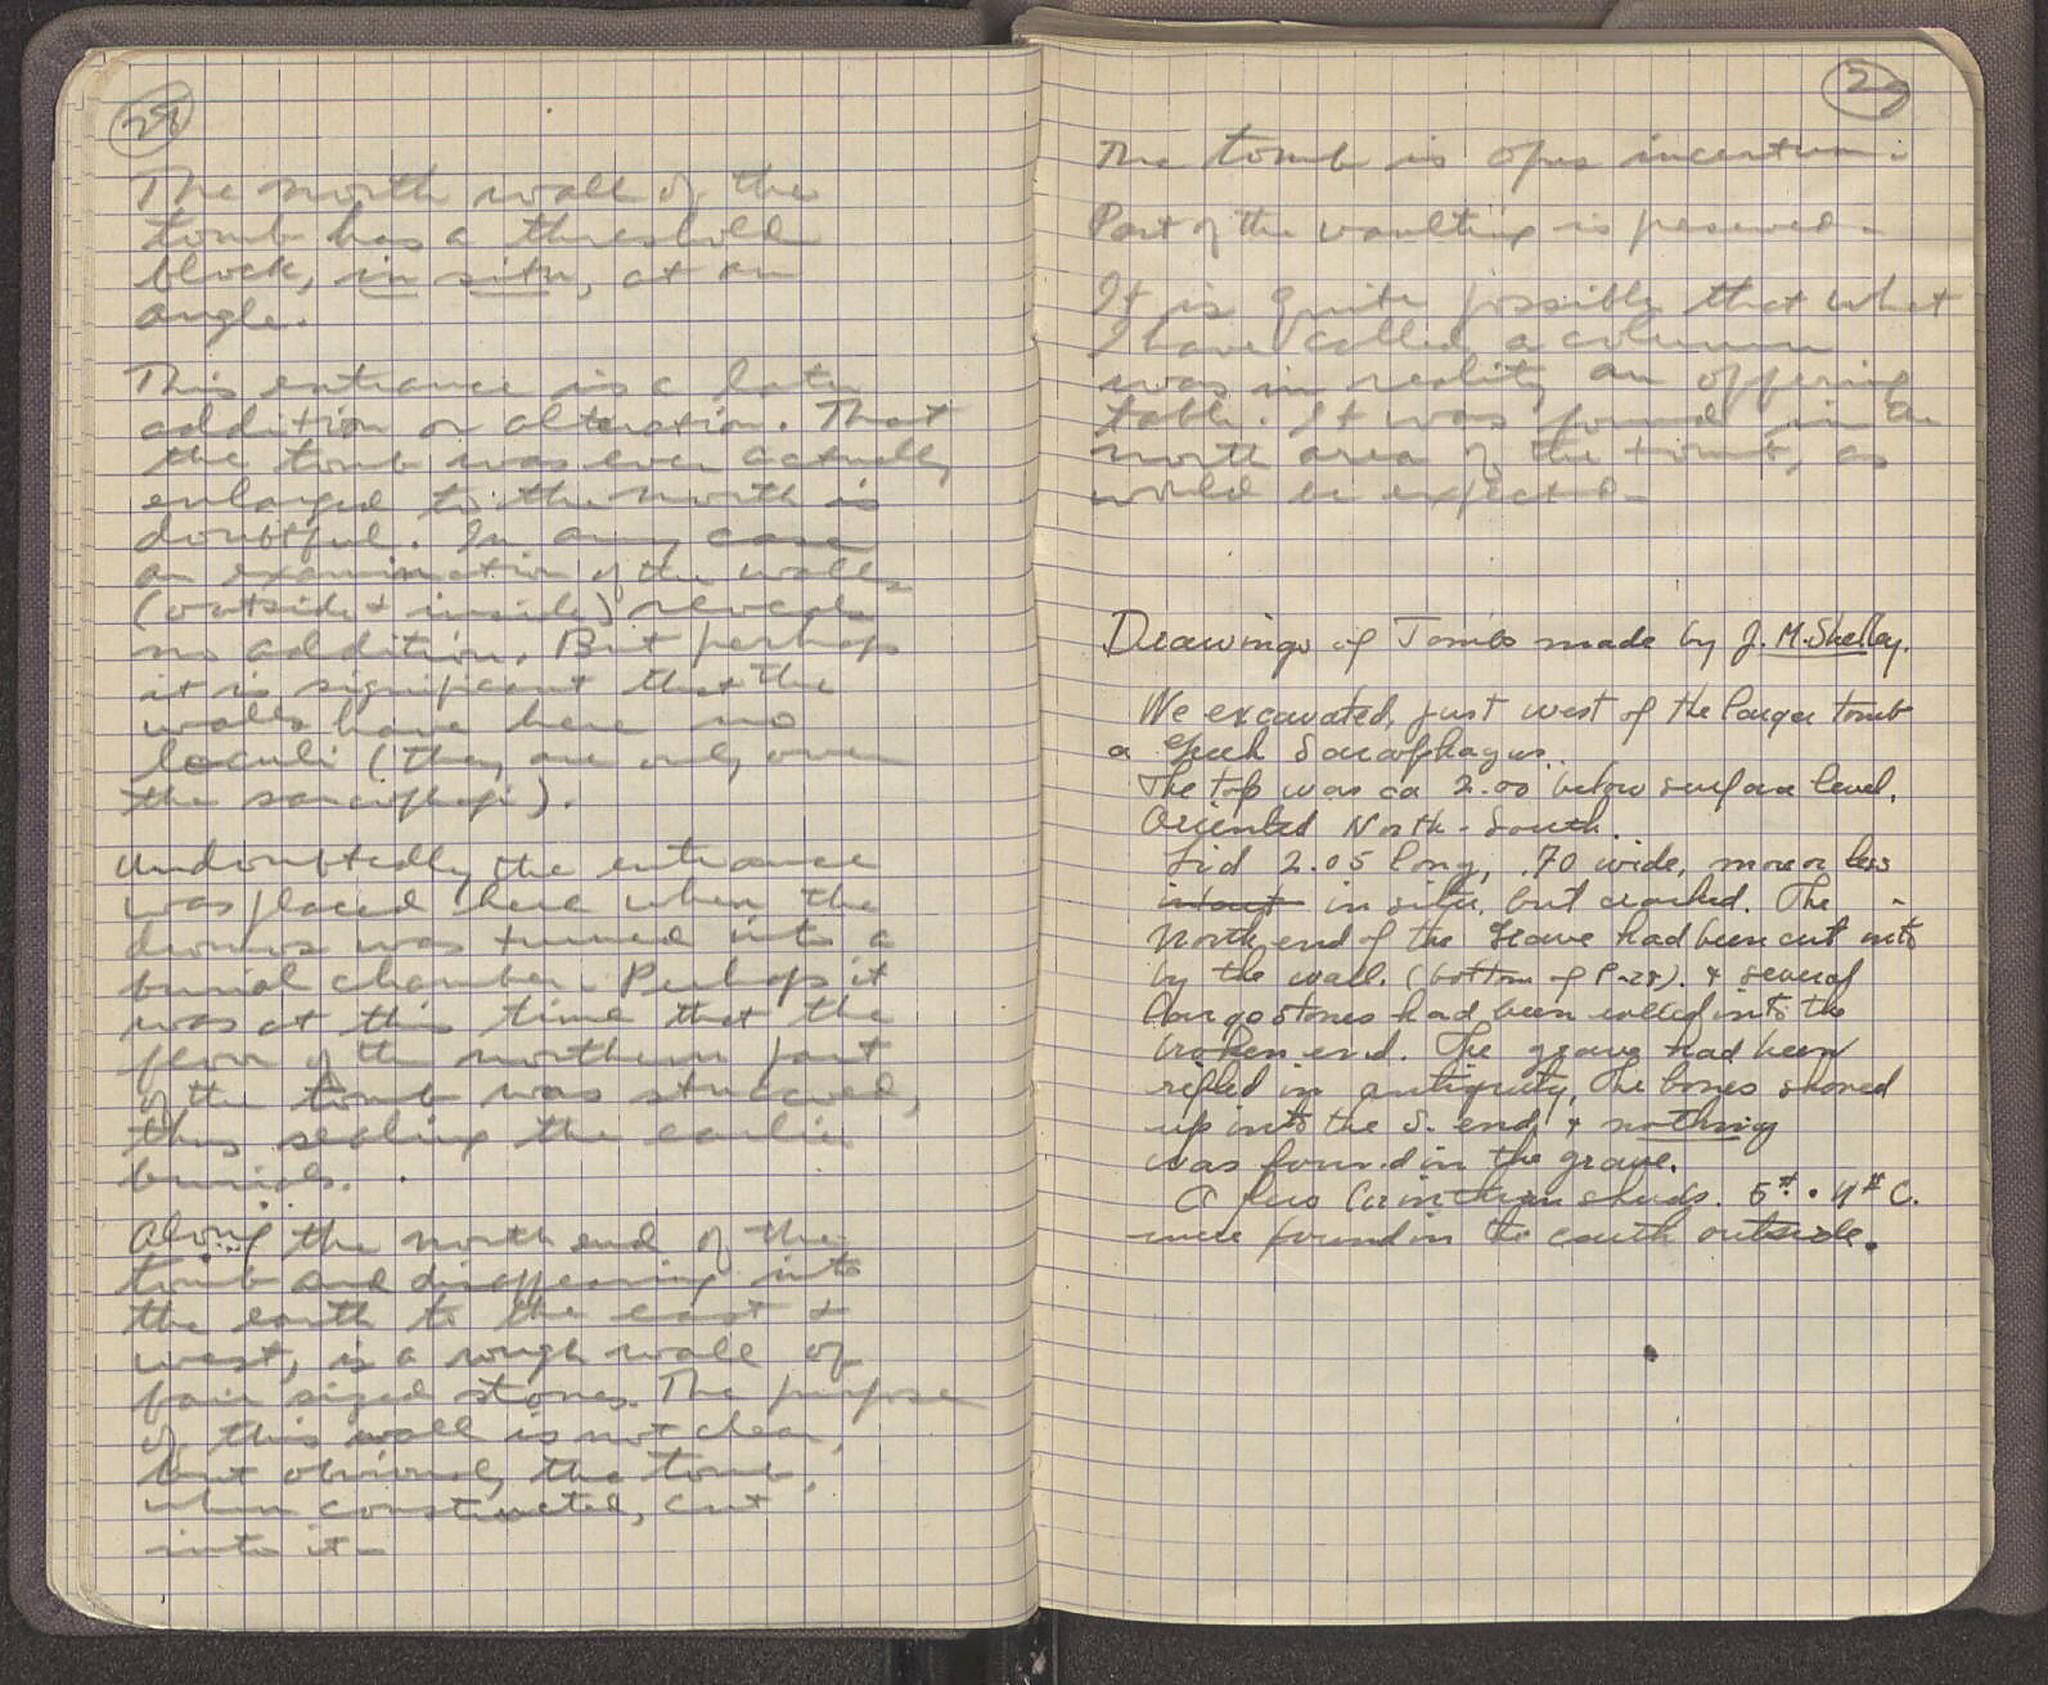 28
The north wall of the
tomb has a threshold
block, in situ, at an
angle.
This entrance is a later
addition or alteration. That
the tomb was ever actually
enlarged to the north is
doubtful. In any case
an examination of the walls
(outside & inside) reveals
no addition. But perhaps
it is significant that the
walls have here no
loculi (they are only over
the sarcophagi).
Undoubtedly the entrance
was placed here when the
dromos was turned into a
burial chamber. Perhaps it
was at this time that the
floor of the northern part
of the tomb was stuccoed,
thus sealing the earlier
burials.
Along the north end of the
tomb and disappearing into
the earth to the east &
west, is a rough wall of
fair sized stones. The purpose
of this wall is not clear,
but obviously the tomb,
when constructed, cut
into it.
29
The tomb is opus incertum.
Part of the vaulting is preserved.
It is quite possible that what
I have called a column
was in reality an offering
table. It was found in the
north area of the tomb, as
would be expected.
Drawings of Tombs made by J. M. Shelley.
We excavated, just west of the larger tomb
a Greek Sarcophagus.
The top was ca 2.00 below surface level.
Oriented North-South.
Lid 2.05 long, .70 wide, more or less
intact in situ, but cracked. The
North end of the grave had been cut into
by the wall. (bottom of P-28). & several
large stones had been rolled into the
broken end. The grave had been
rifled in antiquity, the bones shoved
up into the S. end, & nothing
was found in the grave.
A few Corinthian sherds. 5th - 4th C.
were found in the earth outside.